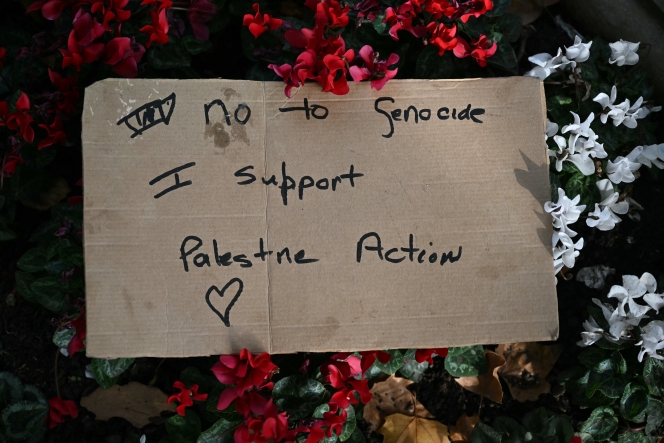 no to Genocide
I support
Palestine Action